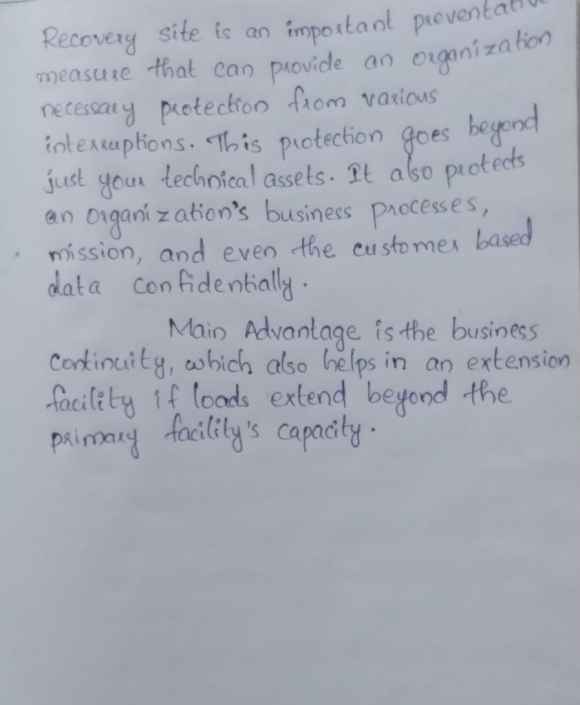 Recovery site is an important preventative
measure that can provide an organization
necessary protection from various
interruptions. This protection goes beyond
just your technical assets. It also protects
an organization's business processes,
mission, and even the customer based
data confidentially.
Main Advantage is the business
continuity, which also helps in an extension
facility if loads extend beyond the
primary facility's capacity.